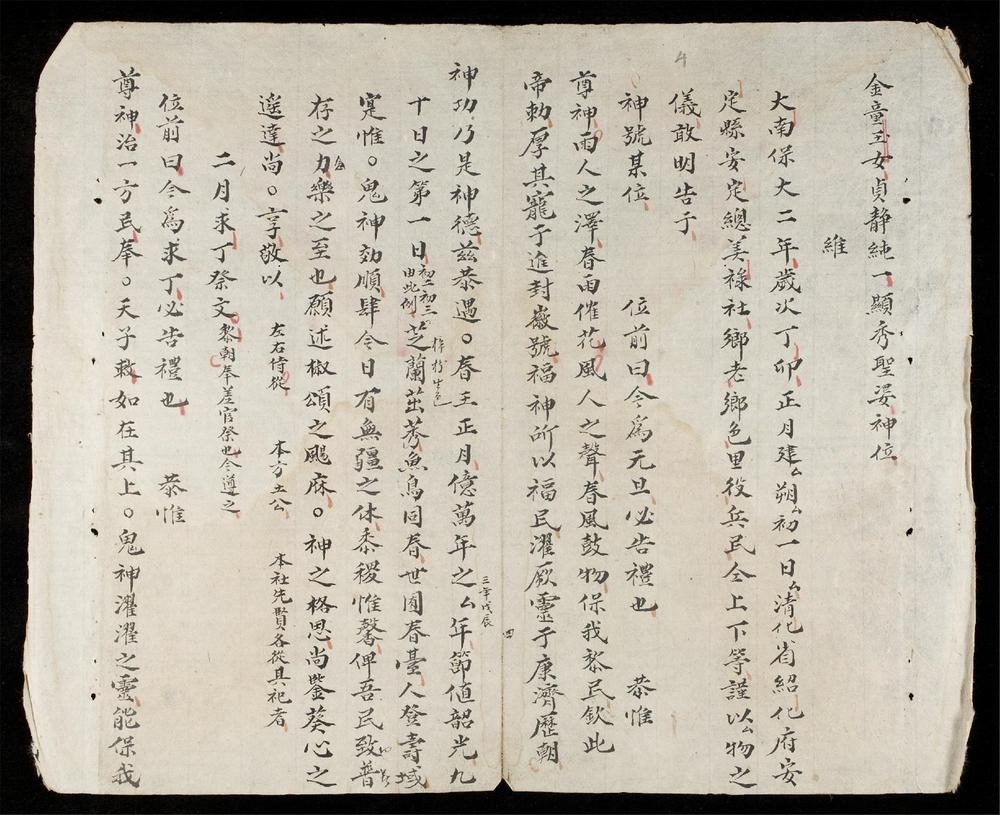 4
金童玉女貞静純一顯秀聖姿神位
維
大南保大二年歲次丁卯正月建厶朔厶初一日厶清化省紹化府安
定縣安定總美祿社鄉老鄉色里役兵民仝上下等謹以厶物之
儀敢明告于
神號某位 位前曰今爲元旦必告禮也 恭惟
尊神雨人之澤春雨催花風人之聲春風鼓物保我黎民欽此
帝勅厚其寵于進封徽號福神所以福民濯厥靈于康濟歷朝
四
三年戊辰
神功乃是神德兹恭遇○春王正月億萬年之厶年節値韶光九
十日之第一日初二初三由此例芝蘭茁秀魚鳥同春世囿春臺人登壽域
寔惟○鬼神効順肆今日有無疆之休黍稷惟馨俾吾民致普
存之力樂之至也願述椒頌之颺庥○神之格思尚鑒葵心之
遥達尚○享敬以 左右侍從 本方土公 本社先賢各從其祀者
二月求丁祭文黎朝奉差官祭也今遵之
位前曰今爲求丁必告禮也 恭惟
尊神治一方民奉○天子敕如在其上○鬼神濯濯之靈能保我